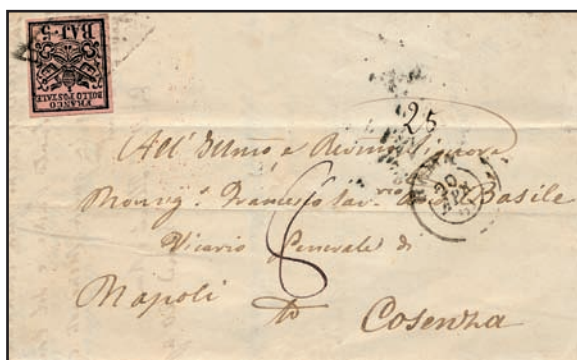 BAJ-5
FRANCO
BOLLO POSTALE
25
All' Illmo e Revmo
Monsgr. Francesco Sav. Basile
Vicario Generale di
8
Napoli Cosenza
20